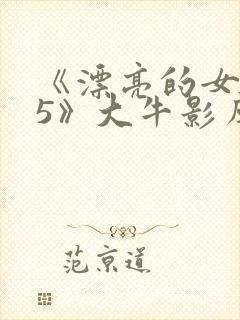 《漂亮的女
5》大牛影
范京道